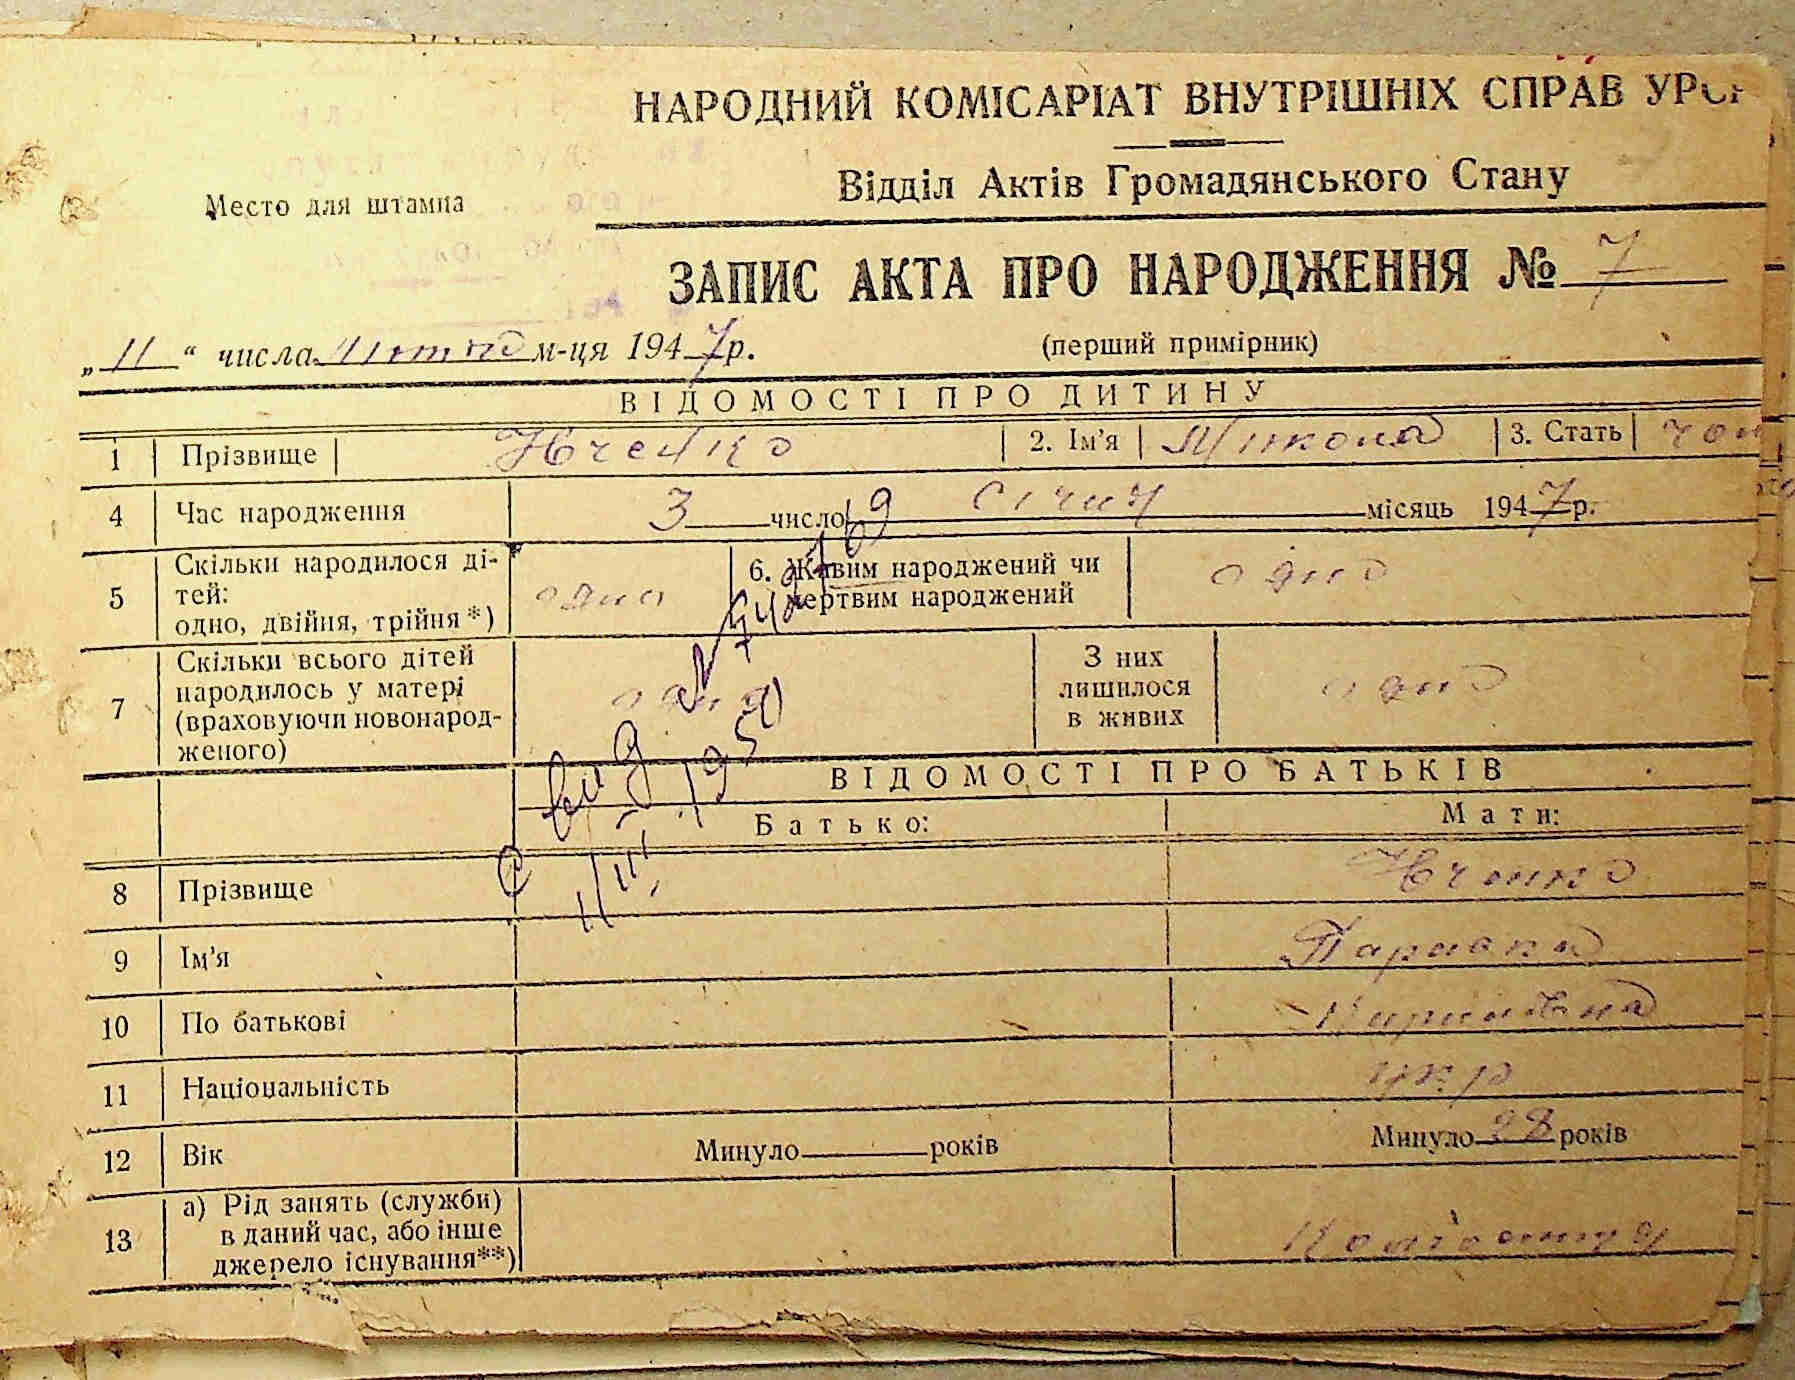 НАРОДНИЙ КОМІСАРІАТ ВНУТРІШНІХ СПРАВ УРСР
Відділ Актів Громадянського Стану
Место для штампа
ЗАПИС АКТА ПРО НАРОДЖЕННЯ № 7
„ 11 “ числа лютого м-ця 1947 р.
(перший примірник)
ВІДОМОСТІ ПРО ДИТИНУ
1 Прізвище 2. Ім'я Микола 3. Стать чол
4 Час народження 3 число січня місяць 1947 р.
5 Скільки народилося ді-
тей:
одно, двійня, трійня *) одно
6. Живим народжений чи
мертвим народжений одно
7 Скільки всього дітей
народилось у матері
(враховуючи новонарод-
женого) одно
З них
лишилося
в живих одно
вид
11/III, 1950
ВІДОМОСТІ ПРО БАТЬКІВ
Батько: Мати:
8 Прізвище
9 Ім'я Параска
10 По батькові Кирилівна
11 Національність укр
12 Вік Минуло років Минуло 28 років
13 а) Рід занять (служби)
в даний час, або інше
джерело існування**) Колгоспниця